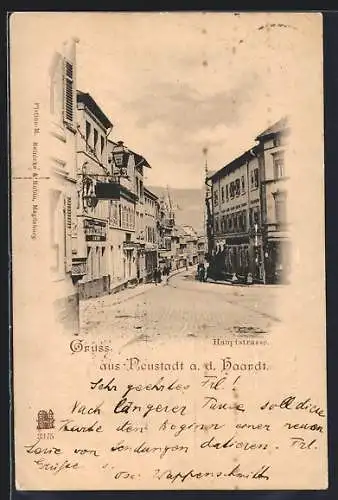 Platino-M. Reinicke & Rubin, Magdeburg.
Hauptstrasse.
Gruss
aus Neustadt a. d. Haardt.
Sehr geehrtes Frl!
Nach längerer Pause soll diese
Karte den Beginn einer neuen
Serie von Sendungen datieren. Frl.
Grüße
3175